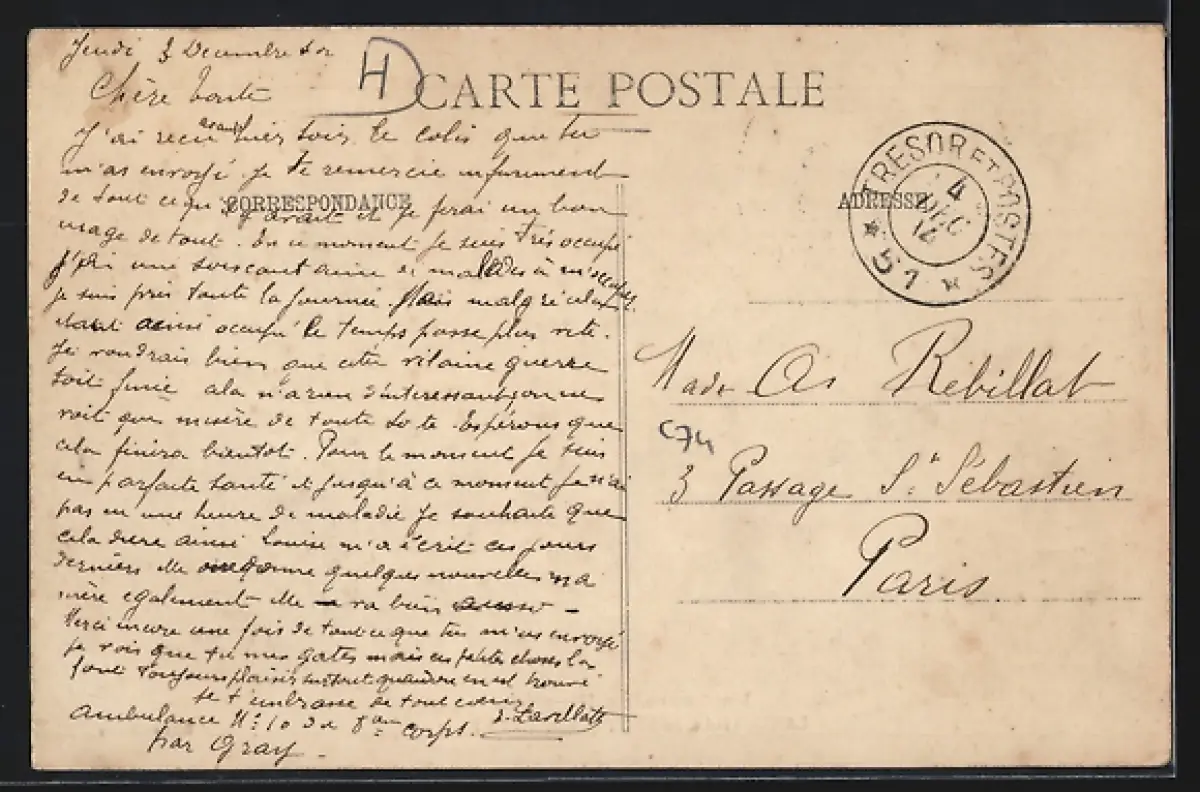 Jeudi 3 Decembre
H
CARTE POSTALE
Chère tante
J'ai reçu avant hier soir le colis que tu
m'as envoyé. Je te remercie infiniment
de tout ce qu'il y avait et je ferai un bon
CORRESPONDANCE
usage de tout. En ce moment je suis très occupé
j'ai une soixantaine de malades à m'occuper
je suis pris toute la journée. Mais malgré cela
étant ainsi occupé le temps passe plus vite.
Je voudrais bien que cette vilaine guerre
soit finie cela n'a rien d'interessant on ne
voit que misère de toute sorte. Espérons que
cela finira bientôt. Pour le moment je suis
en parfaite santé et jusqu'à ce moment je n'ai
pas eu une heure de maladie je souhaite que
cela dure ainsi Louise m'a écrit ces jours
derniers elle me donne quelques nouvelles ma
mère egalement elle va bien aussi
Merci encore une fois de tout ce que tu m'as envoyé
je vois que tu me gates mais ces petites choses la
font toujours plaisir surtout quand on en est
je t'embrasse de tout coeur
Ambulance N° 10 du 8eme corps.
par Gray
ADRESSE
TRESOR ET POSTES
4
DEC
14
* 51 *
Made Rebillat
C74
3 Passage St Sébastien
Paris